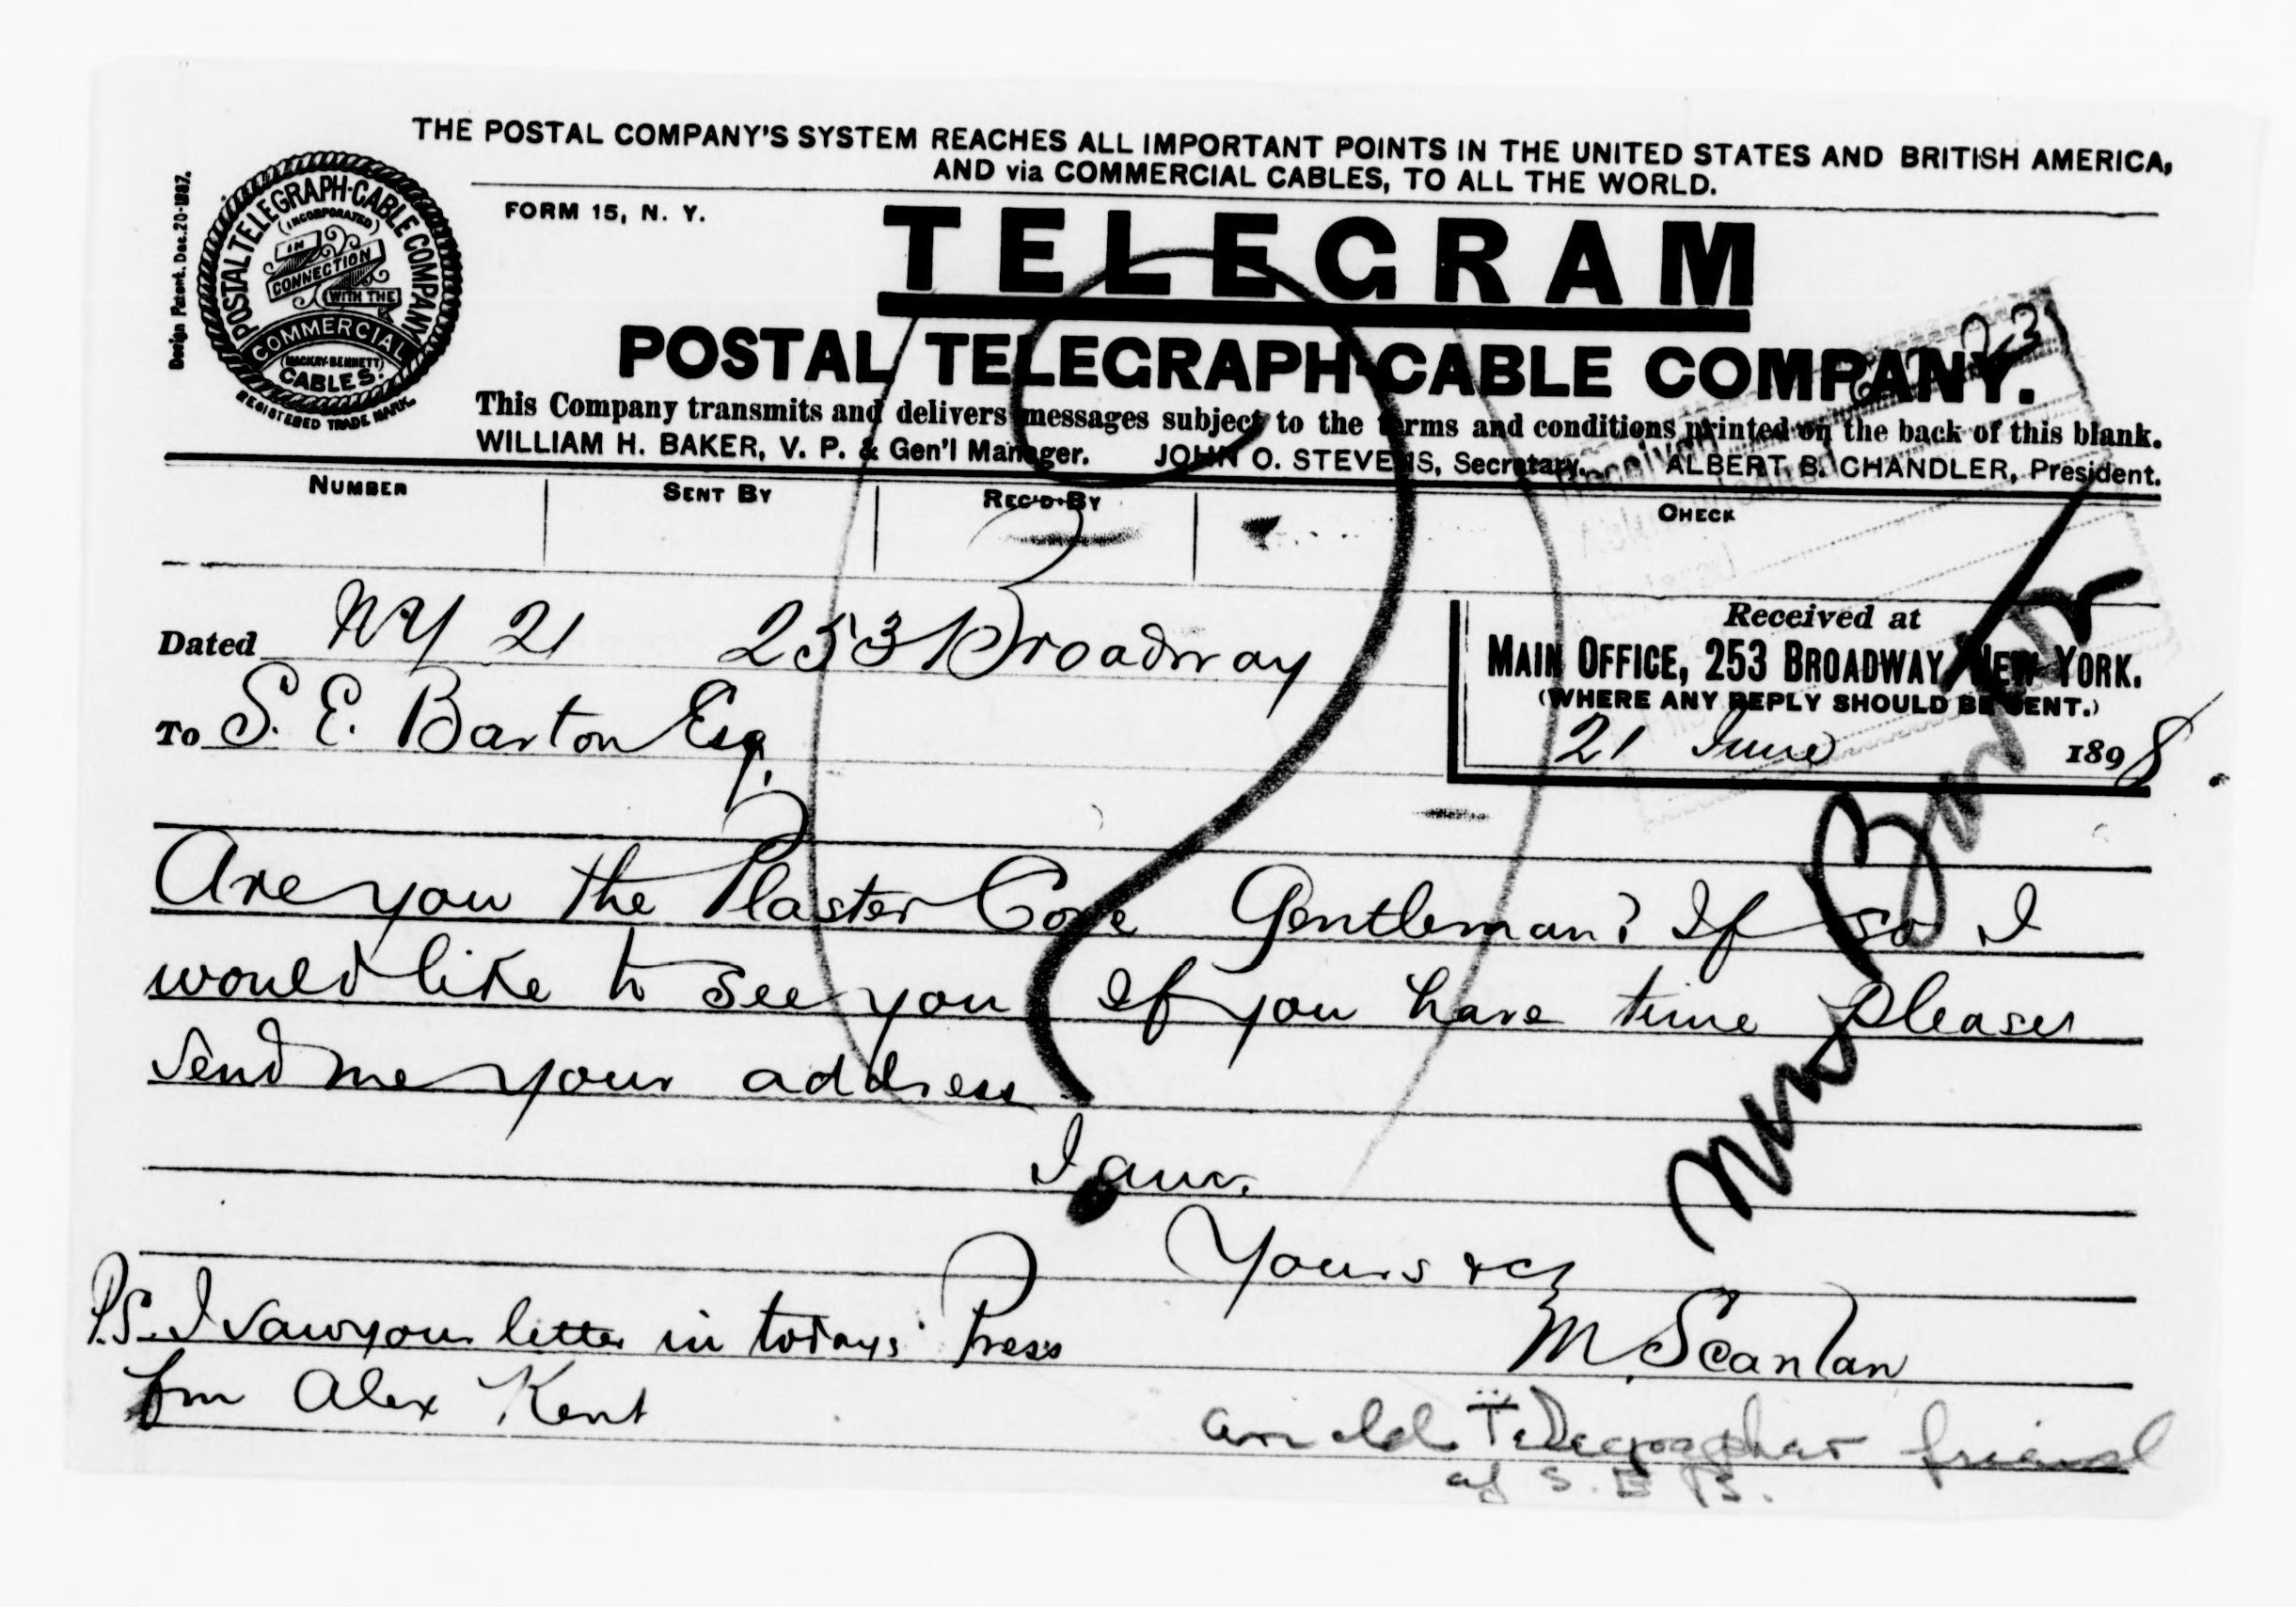 THE POSTAL COMPANY'S SYSTEM REACHES ALL IMPORTANT POINTS IN THE UNITED STATES AND BRITISH AMERICA,
AND via COMMERCIAL CABLES, TO ALL THE WORLD.
Design Patent. Dec. 20-1887.
POSTAL TELEGRAPH-CABLE COMPANY
(INCORPORATED)
IN
CONNECTION
WITH THE
COMMERCIAL
(MACKAY-BENNETT)
CABLES.
REGISTERED TRADE MARK.
FORM 15, N. Y.
TELEGRAM
POSTAL TELEGRAPH-CABLE COMPANY.
This Company transmits and delivers messages subject to the terms and conditions printed on the back of this blank.
WILLIAM H. BAKER, V. P. & Gen'l Manager. JOHN O. STEVENS, Secretary. ALBERT B. CHANDLER, President.
NUMBER SENT BY REC'D BY CHECK
Dated NY 21 253 Broadway
Received at
MAIN OFFICE, 253 BROADWAY, NEW YORK.
(WHERE ANY REPLY SHOULD BE SENT.)
21 June 1898.
To S. E. Barton Esq.
Are you the Plaster Cove Gentleman? If so I
would like to see you If you have time please
send me your address
I am.
Yours &c
M. Scanlan
P.S. I saw your letter in todays Press
fm Alex Kent
an old Telegrapher friend
of S. E. B.
Miss Barton